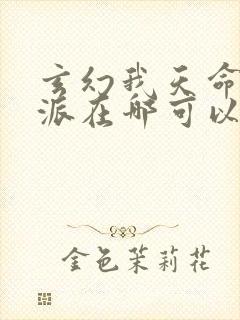 玄幻我天命
派在哪可以
金色茉莉花